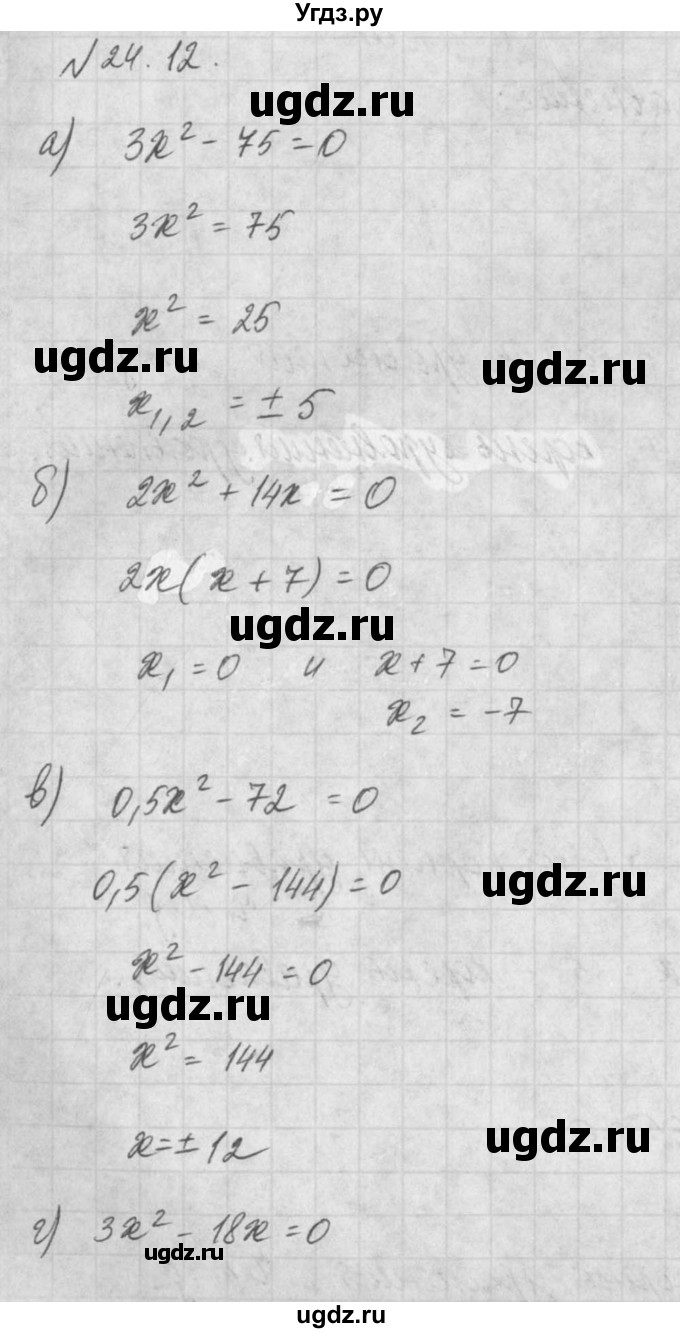 Угдз.ру
№ 24.12.
ugdz.ru
а) 3x² - 75 = 0
3x² = 75
x² = 25
ugdz.ru
ugdz.ru
x₁,₂ = ± 5
б) 2x² + 14x = 0
2x(x + 7) = 0
ugdz.ru
x₁ = 0 и x + 7 = 0
x₂ = -7
в) 0,5x² - 72 = 0
0,5(x² - 144) = 0
ugdz.ru
x² - 144 = 0
ugdz.ru
x² = 144
x = ± 12
ugdz.ru
г) 3x² - 18x = 0
ugdz.ru
ugdz.ru